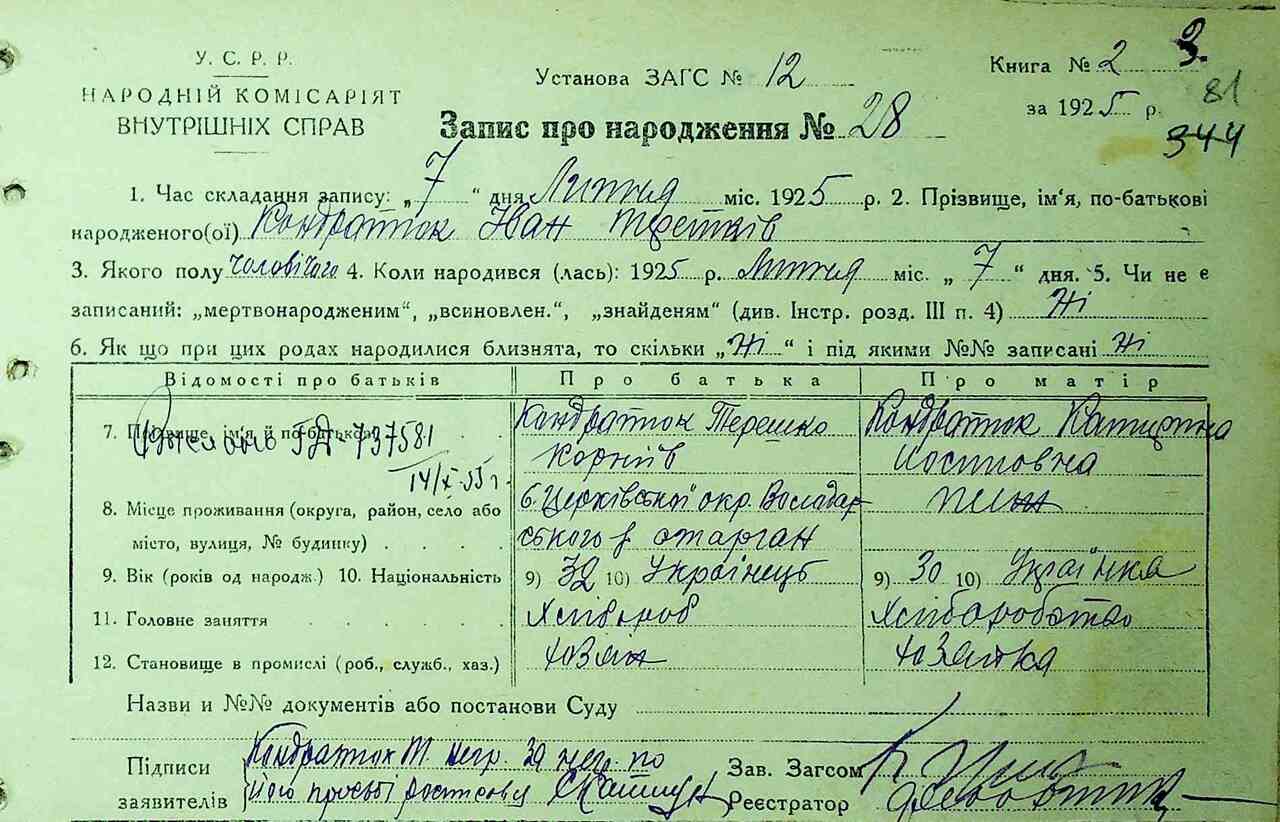 У. С. Р. Р.
НАРОДНІЙ КОМІСАРІЯТ
ВНУТРІШНІХ СПРАВ
Установа ЗАГС № 12
Книга № 2 3.
за 1925 р. 81
344
Запис про народження № 28
1. Час складання запису: „ 7 “ дня Липня міс. 1925 р. 2. Прізвище, ім'я, по-батькові
народженого(ої) Кондратюк Іван
3. Якого полу чоловічого 4. Коли народився (лась): 1925 р. Липня міс. „ 7 “ дня. 5. Чи не є
записаний: „мертвонародженим“, „всиновлен.“, „знайденям“ (див. Інстр. розд. III п. 4) Ні
6. Як що при цих родах народилися близнята, то скільки „ Ні “ і під якими №№ записані Ні
Відомості про батьків Про батька Про матір
7. Прізвище, ім'я й по-батькові Кондратюк Терешко Кондратюк Катерина
ГД-737581 Корніїв Йосиповна
14/X-55 г.
8. Місце проживання (округа, район, село або Б. Церківської окр. Володар
місто, вулиця, № будинку) ського р
9. Вік (років од народж.) 10. Національність 9) 32 10) Українець 9) 30 10) Українка
11. Головне заняття Хлібороб Хлібаробство
12. Становище в промислі (роб., служб., хаз.) Хозяін Хозяйка
Назви и №№ документів або постанови Суду
Підписи Кондратюк Т. негр. За негр. по
заявителів його просьбі росписовся
Зав. Загсом
Реєстратор